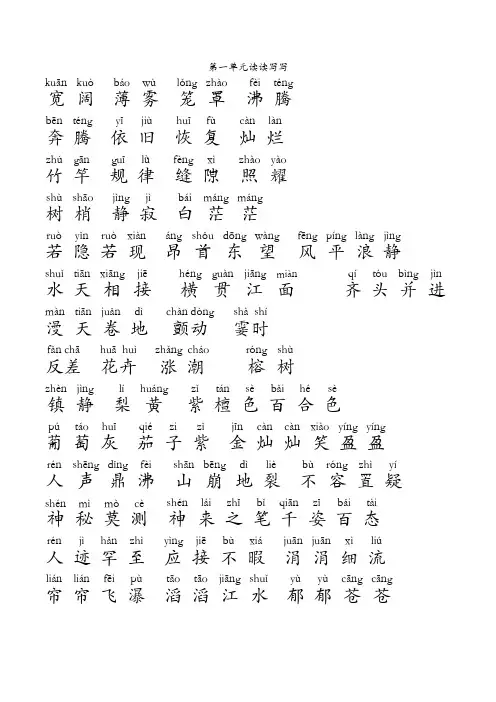 第一单元读读写写
kuān kuò báo wù lǒng zhào fèi téng
宽阔 薄雾 笼罩 沸腾
bēn téng yī jiù huī fù càn làn
奔腾 依旧 恢复 灿烂
zhú gān guī lǜ fèng xì zhào yào
竹竿 规律 缝隙 照耀
shù shāo jìng jì bái máng máng
树梢 静寂 白茫茫
ruò yǐn ruò xiàn áng shǒu dōng wàng fēng píng làng jìng
若隐若现 昂首东望 风平浪静
shuǐ tiān xiāng jiē héng guàn jiāng miàn qí tóu bìng jìn
水天相接 横贯江面 齐头并进
màn tiān juǎn dì chàn dòng shà shí
漫天卷地 颤动 霎时
fǎn chā huā huì zhǎng cháo róng shù
反差 花卉 涨潮 榕树
zhèn jìng lí huáng zǐ tán sè bǎi hé sè
镇静 梨黄 紫檀色百合色
pú táo huī qié zi zǐ jīn càn càn xiào yíng yíng
葡萄灰 茄子紫 金灿灿笑盈盈
rén shēng dǐng fèi shān bēng dì liè bù róng zhì yí
人声鼎沸 山崩地裂 不容置疑
shén mì mò cè shén lái zhī bǐ qiān zī bǎi tài
神秘莫测 神来之笔千姿百态
rén jì hǎn zhì yìng jiē bù xiá juān juān xì liú
人迹罕至 应接不暇 涓涓细流
lián lián fēi pù tāo tāo jiāng shuǐ yù yù cāng cāng
帘帘飞瀑 滔滔江水 郁郁苍苍